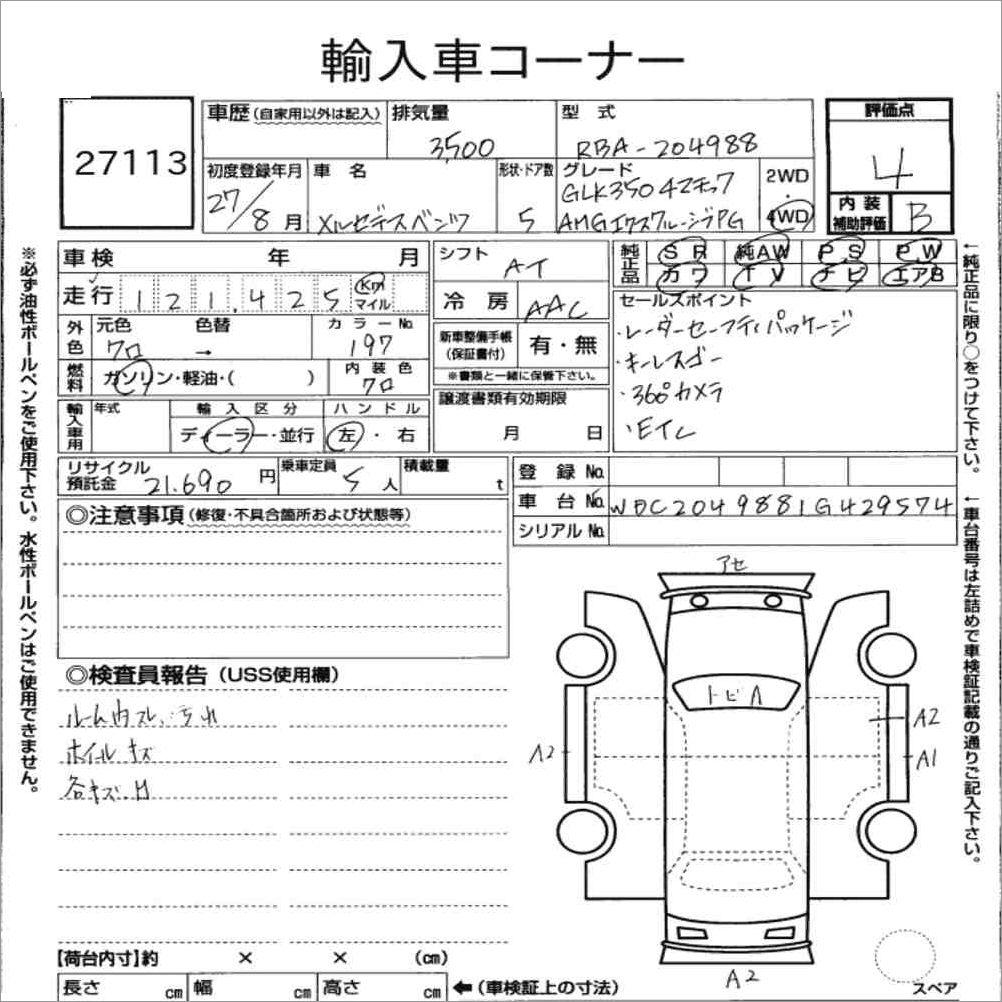 輸入車コーナー
27113
車歴 (自家用以外は記入)
排気量
3,500
型 式
RBA-204988
評価点
4
初度登録年月
27/8月
車 名
メルセデスベンツ
形状・ドア数
5
グレード
GLK350 4マチック
AMGエクスクルーシブPG
2WD
・
4WD
内 装
補助評価
B
車検 年 月
走行 121,425
Km
マイル
シフト
AT
冷 房
AAC
純正品
SR 純AW PS PW
カワ TV ナビ エアB
外色
元色 色替
クロ →
カラーNo.
197
燃料
ガソリン・軽油・( )
内 装 色
クロ
新車整備手帳
(保証書付)
有・無
※書類と一緒に保管下さい。
セールスポイント
・レーダーセーフティパッケージ
・キーレスゴー
・360°カメラ
・Eテレ
輸入車用
年式
輸 入 区 分
ディーラー・並行
ハ ン ド ル
左・右
譲渡書類有効期限
月 日
リサイクル
預託金
21.690 円
乗車定員
5 人
積載量
t
登 録 No.
車 台 No. WDC2049881G429574
シリアル No.
◎注意事項 (修復・不具合箇所および状態等)
◎検査員報告 (USS使用欄)
ルーム内スレ、汚れ
ホイールキズ
各キズ.H
アセ
トビA
A2
A2
A1
A2
スペア
【荷台内寸】約 × × (cm)
長さ cm 幅 cm 高さ cm ←(車検証上の寸法)
※必ず油性ボールペンをご使用下さい。水性ボールペンはご使用できません。
←純正品に限り○をつけて下さい。
←車台番号は左詰めで車検証記載の通りご記入下さい。